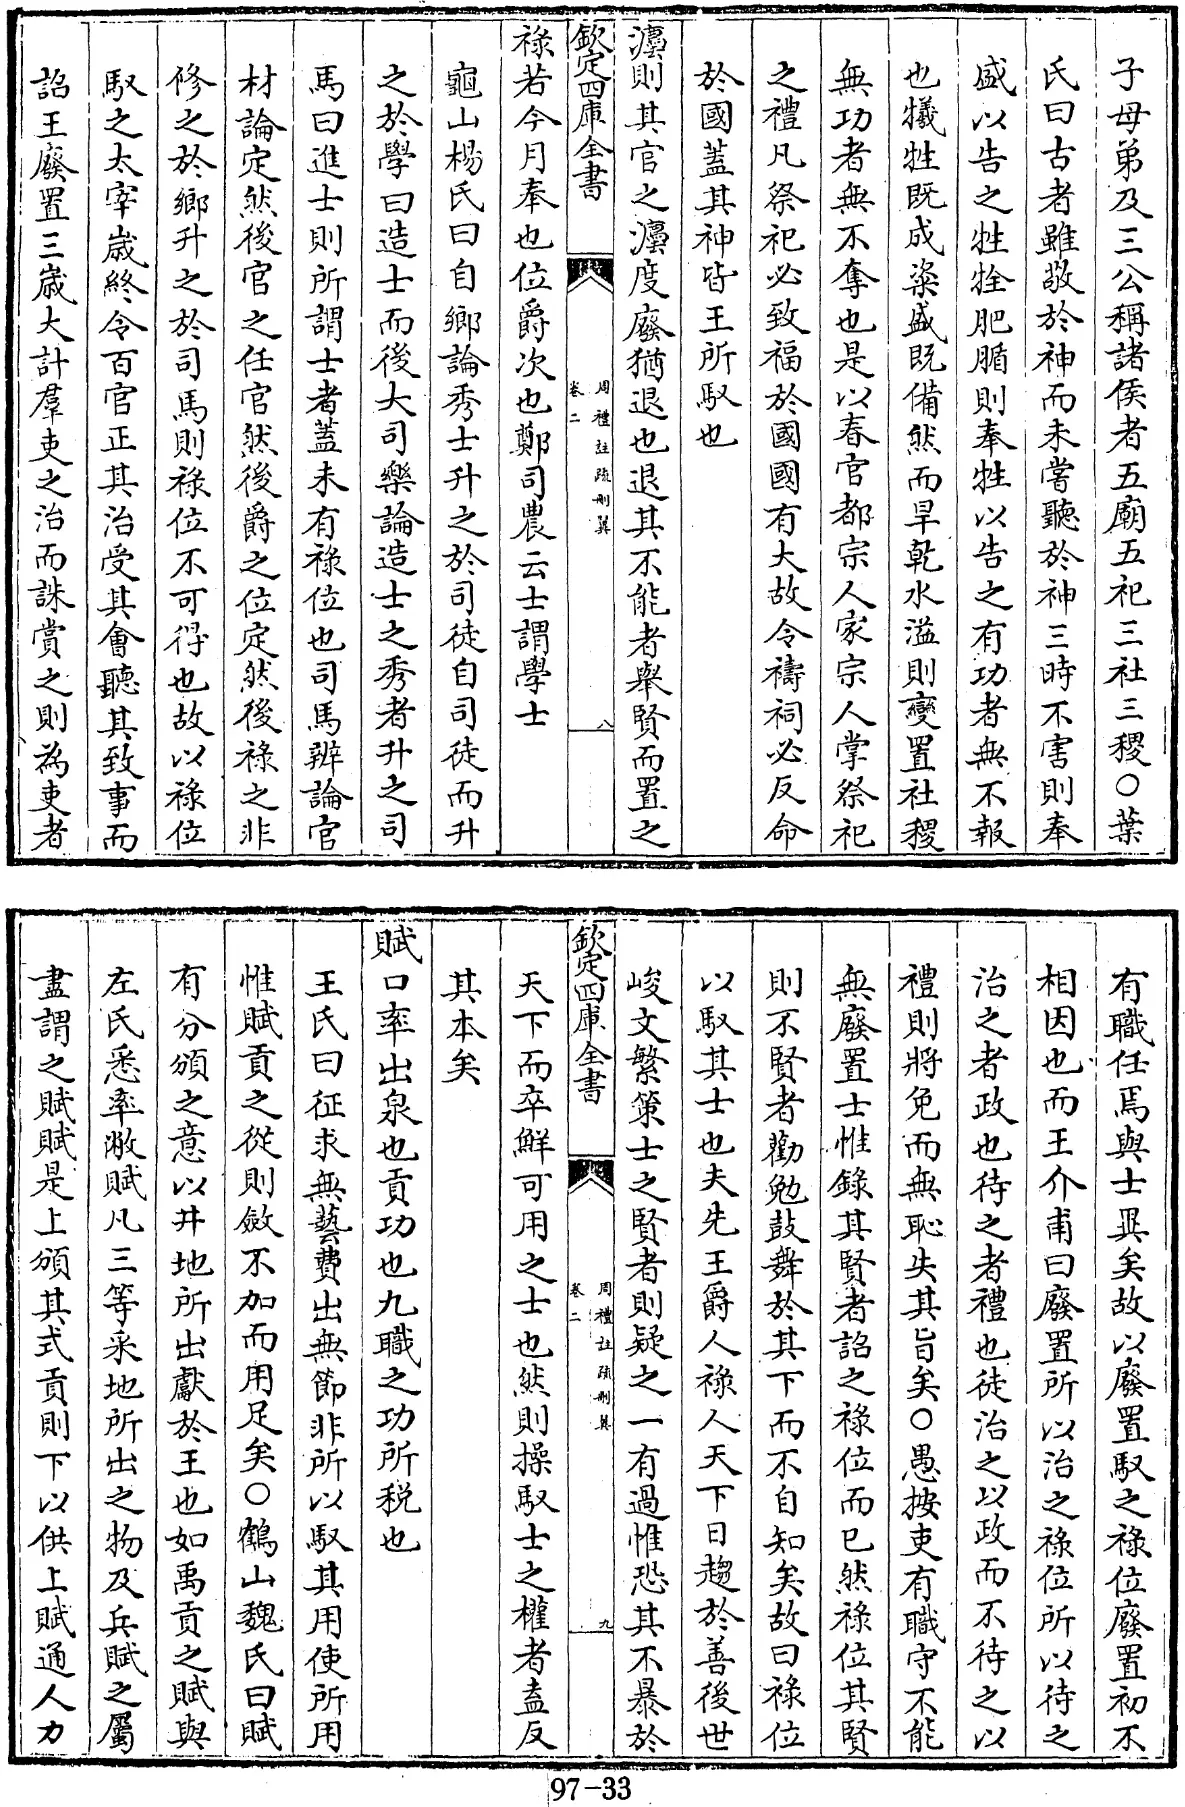 子母弟及三公稱諸侯者五廟五祀三社三稷○葉
氏曰古者雖敬於神而未嘗聽於神三時不害則奉
盛以告之牲牷肥腯則奉牲以告之有功者無不報
也犧牲既成粢盛既備然而旱乾水溢則變置社稷
無功者無不奪也是以春官都宗人家宗人掌祭祀
之禮凡祭祀必致福於國國有大故令禱祠必反命
於國蓋其神皆王所馭也
灋則其官之灋度廢猶退也退其不能者舉賢而置之
欽定四庫全書
周禮註疏刪翼
卷二
八
祿若今月奉也位爵次也鄭司農云士謂學士
龜山楊氏曰自鄉論秀士升之於司徒自司徒而升
之於學曰造士而後大司樂論造士之秀者升之司
馬曰進士則所謂士者蓋未有祿位也司馬辨論官
材論定然後官之任官然後爵之位定然後祿之非
修之於鄉升之於司馬則祿位不可得也故以祿位
馭之太宰歲終令百官正其治受其會聽其致事而
詔王廢置三歲大計羣吏之治而誅賞之則為吏者
有職任焉與士異矣故以廢置馭之祿位廢置初不
相因也而王介甫曰廢置所以治之祿位所以待之
治之者政也待之者禮也徒治之以政而不待之以
禮則將免而無恥失其旨矣○愚按吏有職守不能
無廢置士惟錄其賢者詔之祿位而已然祿位其賢
則不賢者勸勉鼓舞於其下而不自知矣故曰祿位
以馭其士也夫先王爵人祿人天下日趨於善後世
峻文繁策士之賢者則疑之一有過惟恐其不暴於
欽定四庫全書
周禮註疏刪翼
卷二
九
天下而卒鮮可用之士也然則操馭士之權者盍反
其本矣
賦口率出泉也貢功也九職之功所稅也
王氏曰征求無藝費出無節非所以馭其用使所用
惟賦貢之從則斂不加而用足矣○鶴山魏氏曰賦
有分頒之意以井地所出獻於王也如禹貢之賦與
左氏悉率敝賦凡三等采地所出之物及兵賦之屬
盡謂之賦賦是上頒其式貢則下以供上賦通人力
97-33